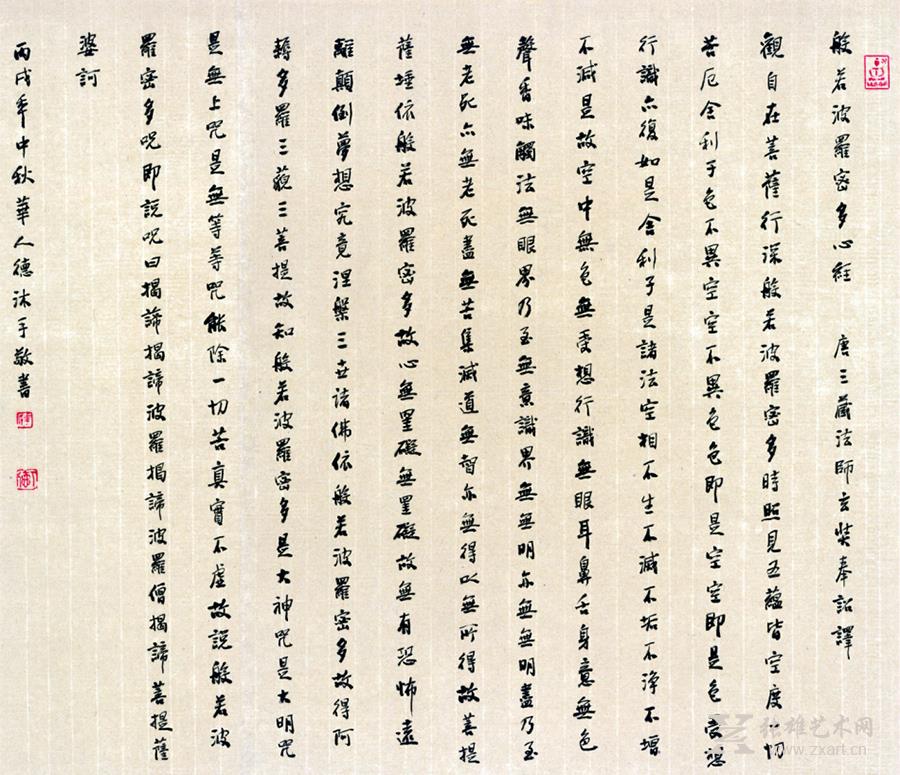 般若波羅密多心經 唐三藏法師玄奘奉詔譯
觀自在菩薩行深般若波羅密多時照見五蘊皆空度一切
苦厄舍利子色不異空空不異色色即是空空即是色受想
行識亦復如是舍利子是諸法空相不生不滅不垢不淨不增
不減是故空中無色無受想行識無眼耳鼻舌身意無色
聲香味觸法無眼界乃至無意識界無無明亦無無明盡乃至
無老死亦無老死盡無苦集滅道無智亦無得以無所得故菩提
薩埵依般若波羅密多故心無罣礙無罣礙故無有恐怖遠
離顛倒夢想究竟涅槃三世諸佛依般若波羅密多故得阿
耨多羅三藐三菩提故知般若波羅密多是大神咒是大明咒
是無上咒是無等等咒能除一切苦真實不虛故說般若波
羅密多咒即說咒曰揭諦揭諦波羅揭諦波羅僧揭諦菩提薩
婆訶
丙戌年中秋華人德沐手敬書
张雄艺术网
www.zxart.cn